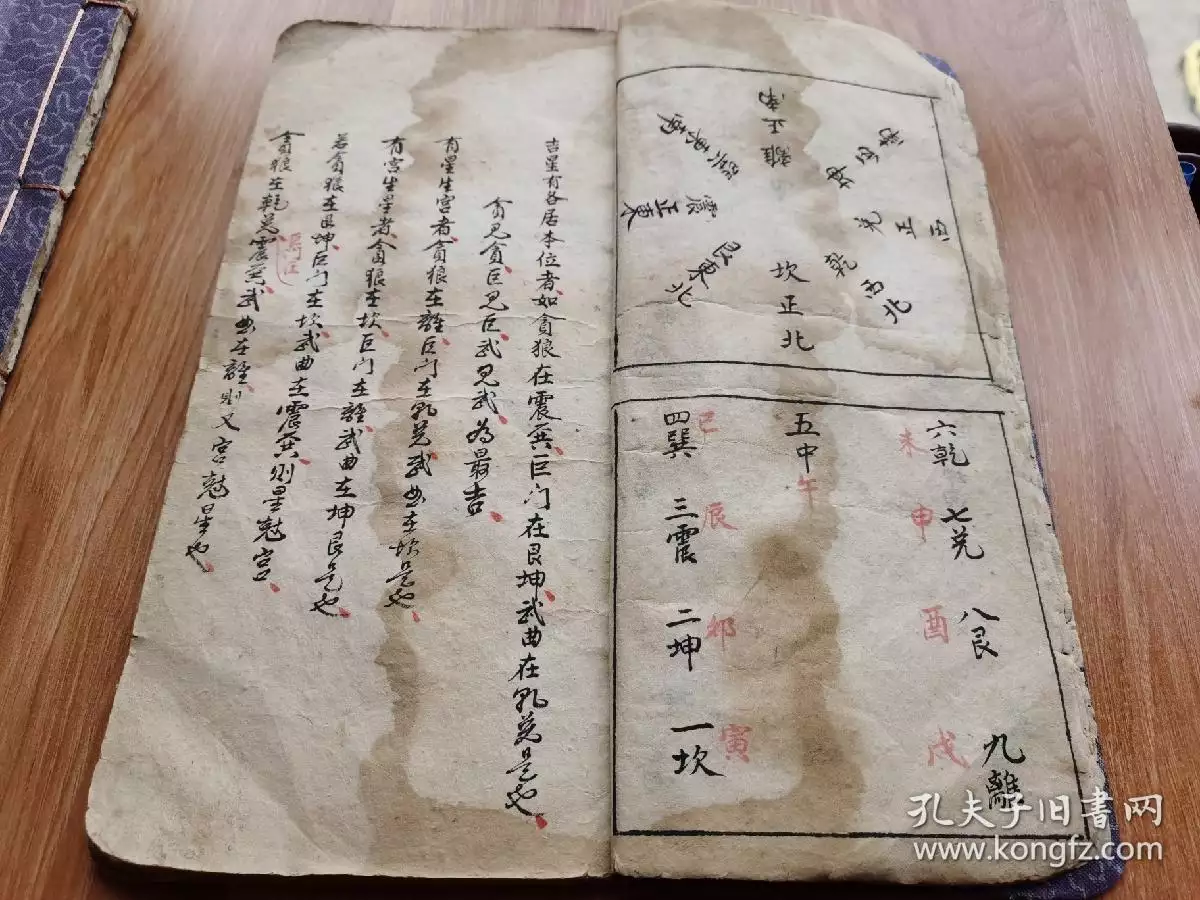 離正南
坤西南
兑正西
乾西北
坎正北
艮東北
震正東
巽東南
六乾
未
七兑
申
八艮
酉
九離
戌
五中
午
四巽
巳
三震
辰
二坤
卯
一坎
寅
吉星有各居本位者、如貪狼在震巽、巨门在艮坤、武曲在乹兑是也、
貪見貪、巨見巨、武見武、為最吉、
有星生宫者、貪狼在離、巨门在乹兑、武曲在坎是也、
有宫生星者、貪狼在坎、巨门在離、武曲在坤艮是也、
若貪狼在艮坤、巨门在坎、武曲在震巽、则星尅宫、
貪狼在乾兑、震巽、武曲在離、则又宫尅星也、
巨门在
孔夫子旧书网
www.kongfz.com